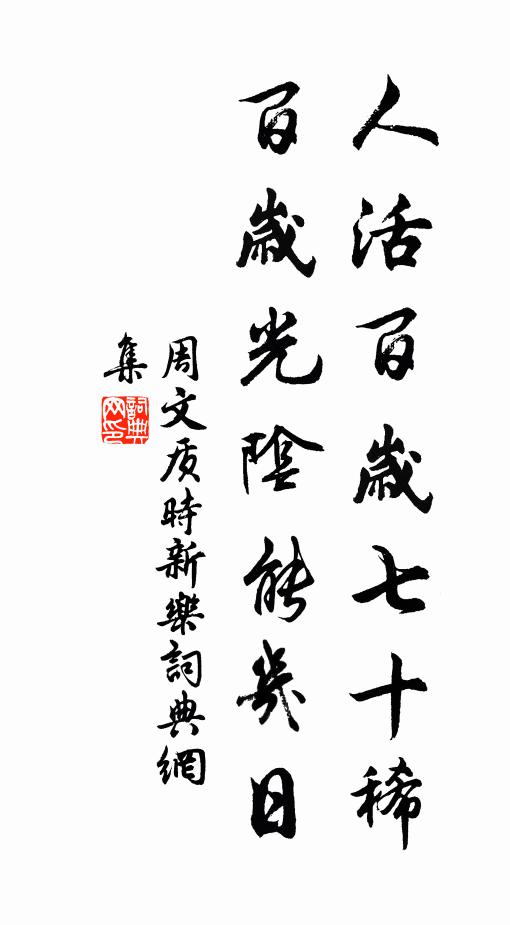 人活百歲七十稀
百歲光陰能幾日
周文质時新樂詞典網
集
詞典
网印